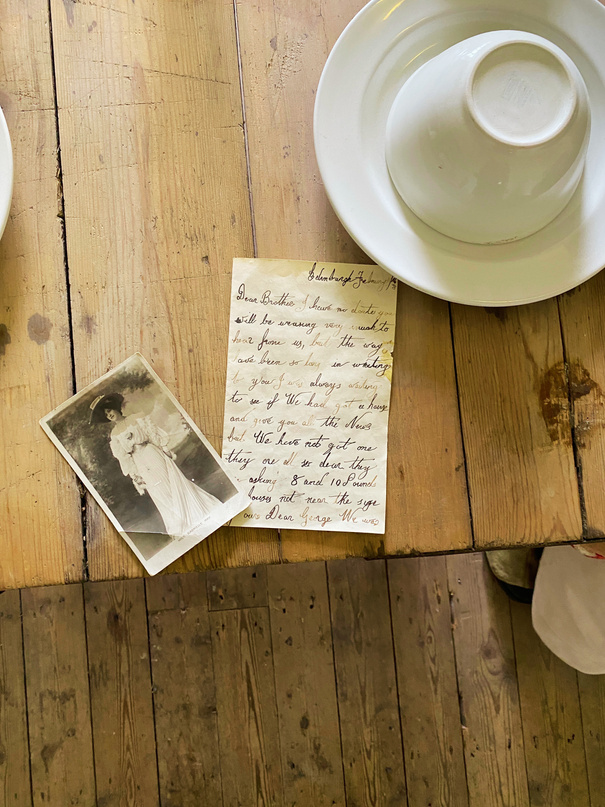 Edinburgh February
Dear Brother I have no doute you
will be wearing very mush to
hear frome us, but the way
have been so long in writing
to you I was always waiting
to see if We had got a house
and give you all the News
but We have not got one
they are all so dear they
asking 8 and 10 Pounds
houses not near the size
ours Dear George We